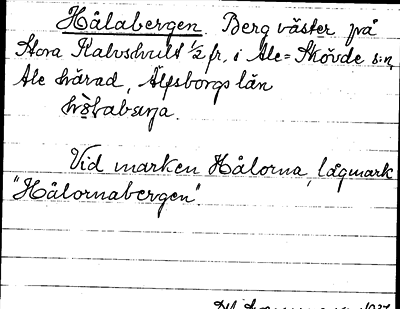 Hålabergen Berg väster på
Stora Kalvshult 1/2 fr. i Ale=Skövde s:n,
Ale härad, Älfsborgs län
Vid marken Hålorna, lågmark
"Hålornabergen".